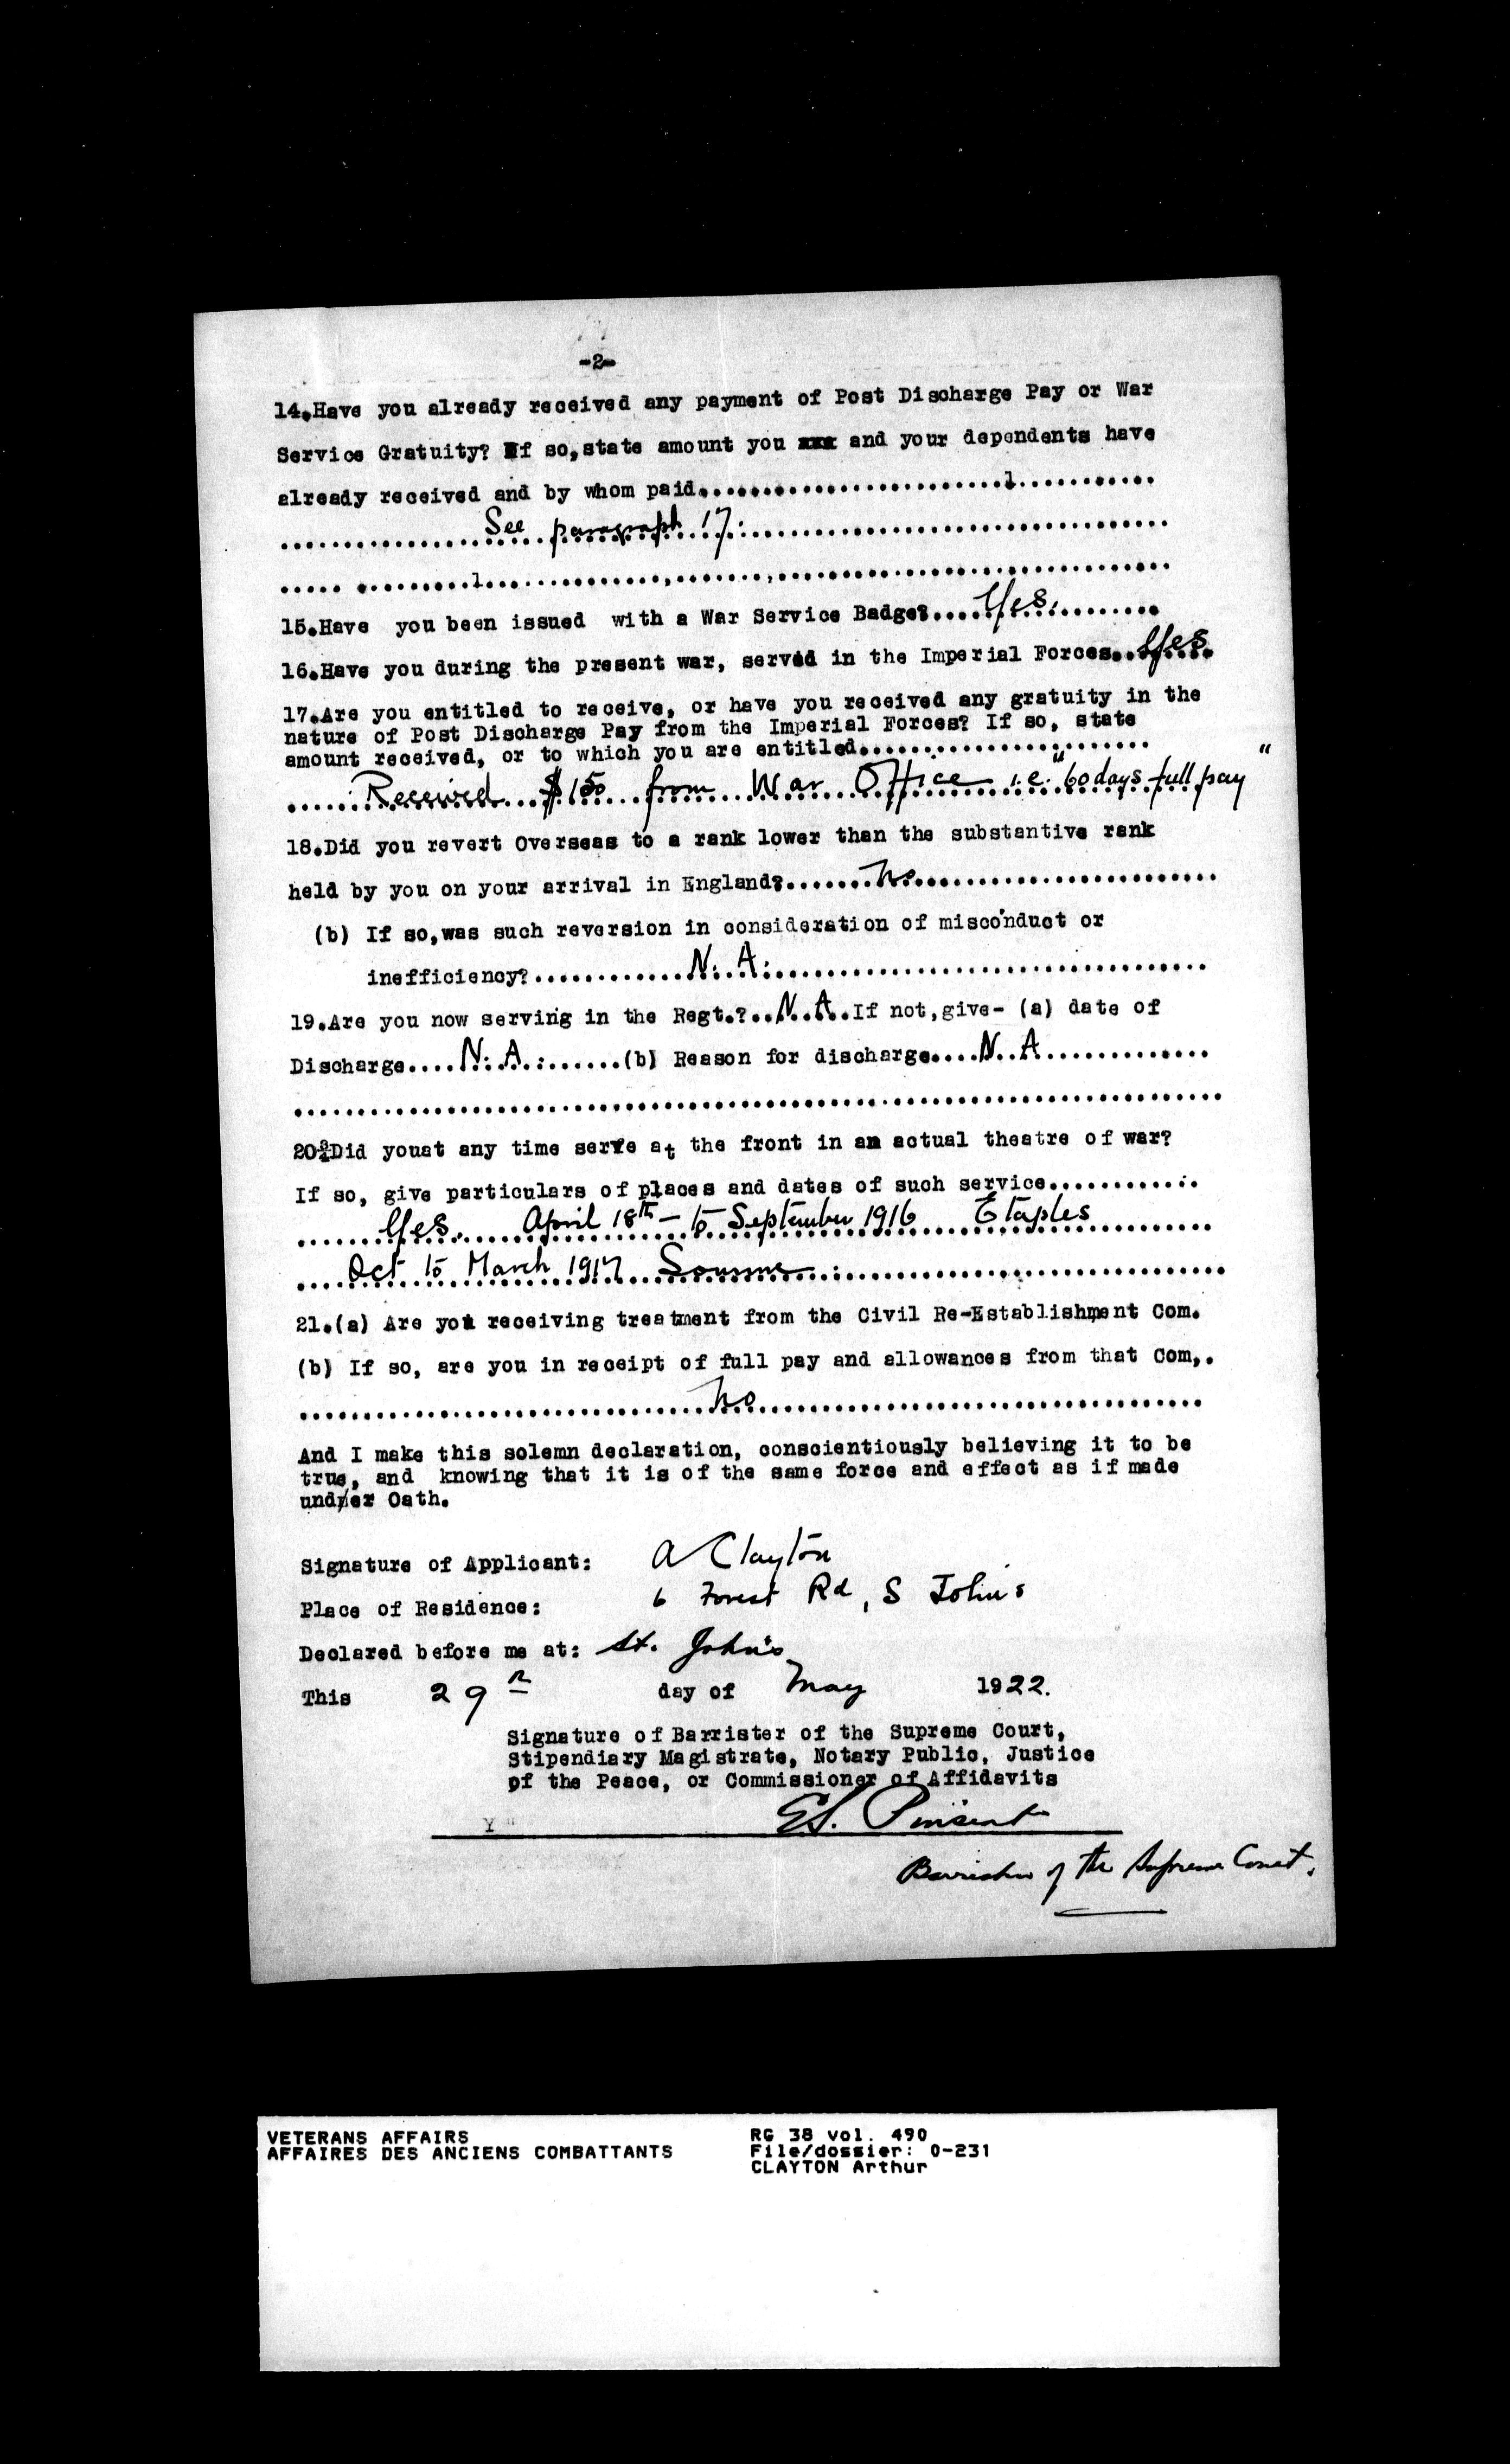 -2-
14.Have you already received any payment of Post Discharge Pay or War
Service Gratuity? If so,state amount you xxx and your dependents have
already received and by whom paid.............................1...........
...................See paragraph 17:.......................................
..... .........1...........................................................
15.Have you been issued with a War Service Badge?....Yes.........
16.Have you during the present war, served in the Imperial Forces..Yes.
17.Are you entitled to receive, or have you received any gratuity in the
nature of Post Discharge Pay from the Imperial Forces? If so, state
amount received, or to which you are entitled.......................
......Received $150 from War Office i.e. "60 days full pay"
18.Did you revert Overseas to a rank lower than the substantive rank
held by you on your arrival in England?.......no............................
(b) If so,was such reversion in consideration of misconduct or
inefficiency?............N. A:.....................................
19.Are you now serving in the Regt.?..N.A..If not,give- (a) date of
Discharge....N. A........(b) Reason for discharge....N. A.............
..........................................................................
20.Did youat any time serve at the front in an actual theatre of war?
If so, give particulars of places and dates of such service............
.......Yes. April 18th - to September 1916 Etaples.........
....Oct to March 1917 Somme..............................
21.(a) Are you receiving treatment from the Civil Re-Establishment Com.
(b) If so, are you in receipt of full pay and allowances from that Com,.
................................no...................................
And I make this solemn declaration, conscientiously believing it to be
true, and knowing that it is of the same force and effect as if made
under Oath.
Signature of Applicant: A Clayton
Place of Residence: 6 Forest Rd, S John's
Declared before me at: St. John's
This 29th day of May 1922.
Signature of Barrister of the Supreme Court,
Stipendiary Magistrate, Notary Public, Justice
of the Peace, or Commissioner of Affidavits
Y
E.S. Pinsent
Barrister of the Supreme Court.
VETERANS AFFAIRS
AFFAIRES DES ANCIENS COMBATTANTS
RG 38 vol. 490
File/dossier: 0-231
CLAYTON Arthur